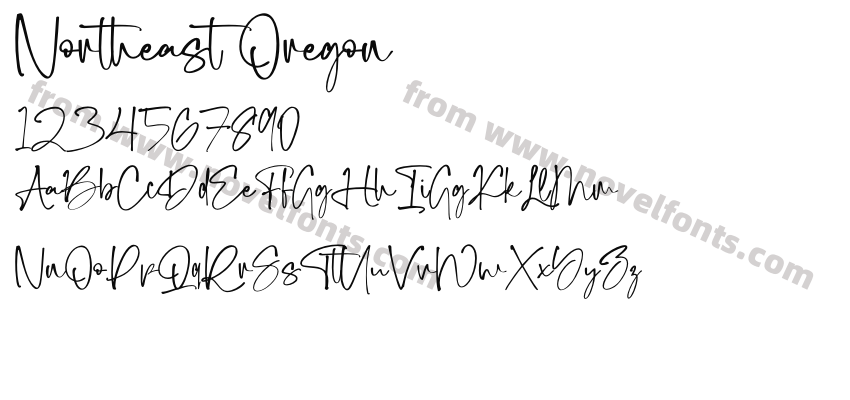 Northeast Oregon
1234567890
AaBbCcDdEeFfGgHhIiGgKkLlMm
NnOoPpQqRrSsTtUuVvWwXxYyZz
from www.novelfonts.com
from www.novelfonts.com